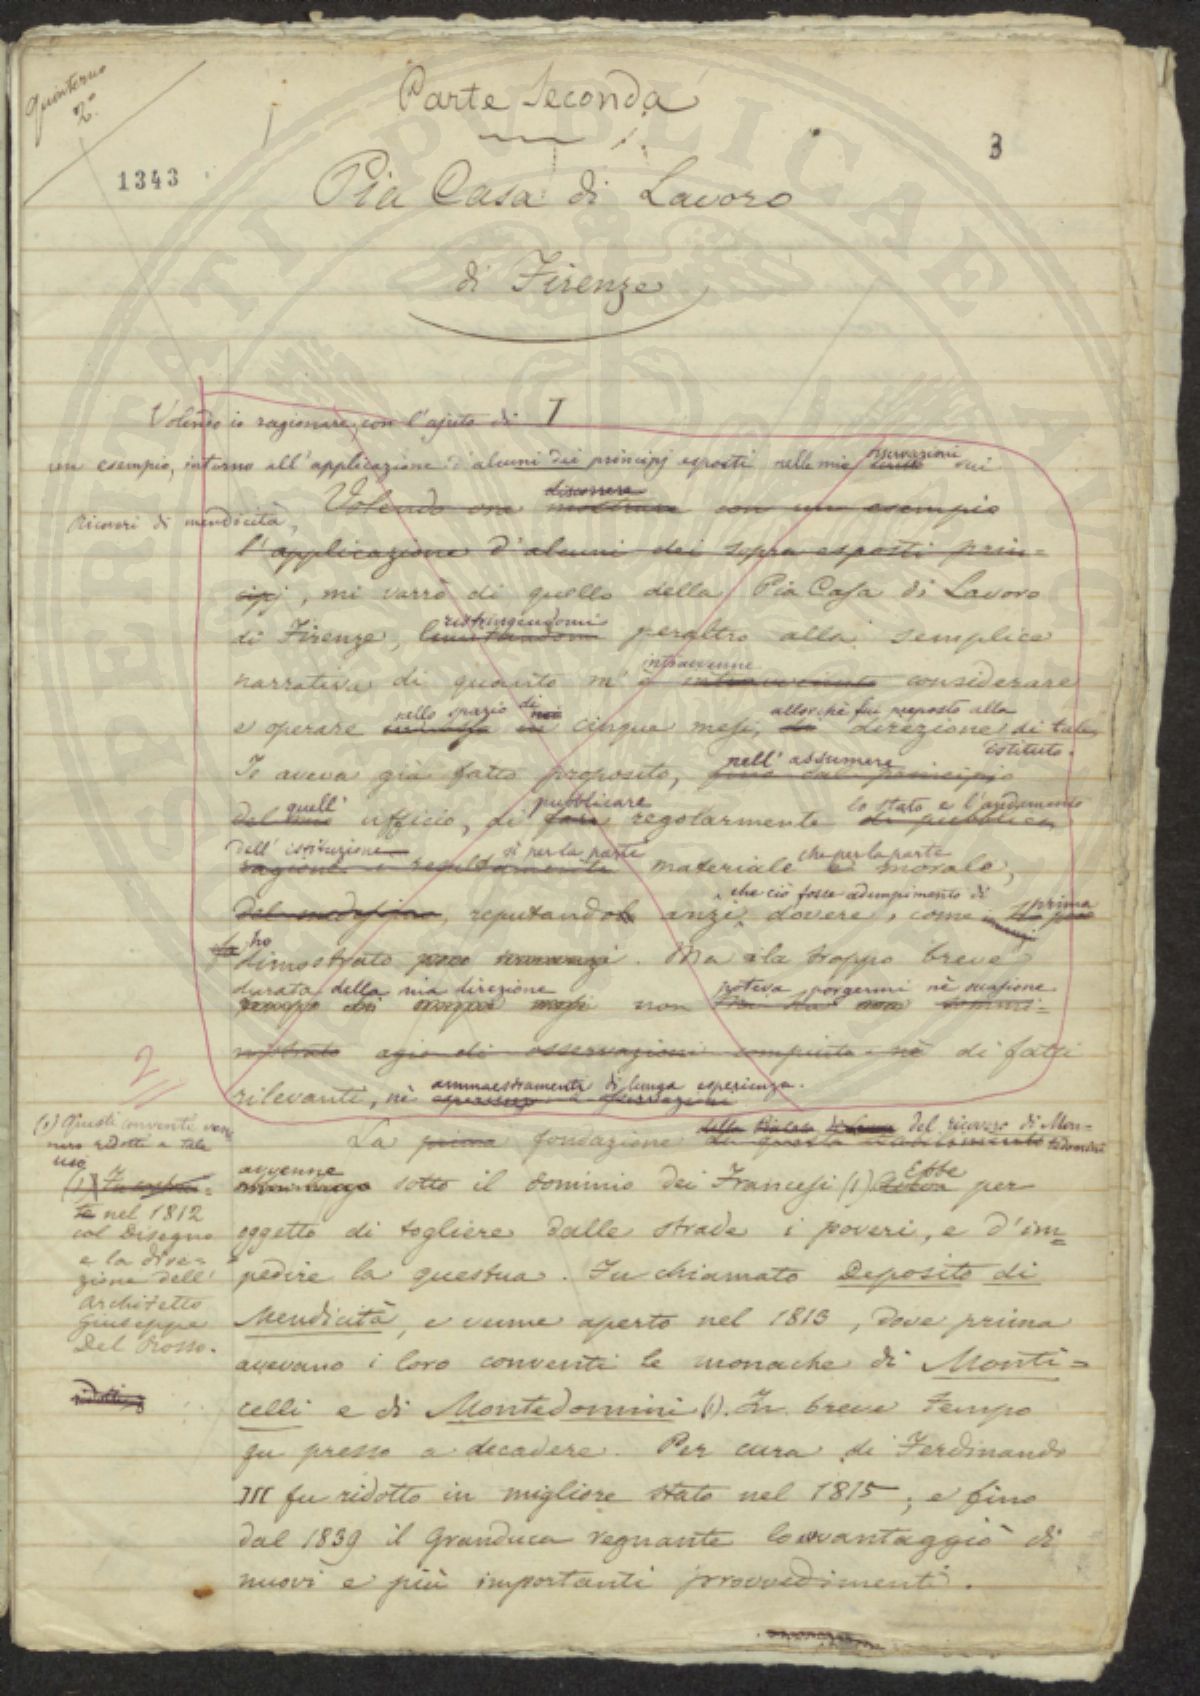 Quinterno
2.°
Parte Seconda
3
1343
Pia Casa di Lavoro
di Firenze
I
Volendo io ragionare, con l'ajuto di
un esempio, intorno all'applicazione d'alcuni dei principj esposti nelle mie osservazioni sui
Ricoveri di mendicità,
discorrere
Volendo ora mostrare con un esempio
l'applicazione d'alcuni dei sopra esposti prin=
cipj, mi varrò di quello della Pia Casa di Lavoro
ristringendomi
di Firenze, peraltro alla semplice
intravvenne
narrativa di quanto m'è intravvenuto considerare
nello spazio di allorchè fui preposto alla
e operare cinque mesi, direzione di tale
istituto.
nell'assumere
Io aveva già fatto proposito, fino dal principio
quell' pubblicare lo stato e l'andamento
del mio ufficio, di fare regolarmente di pubblica
dell'istituzione sì per la parte che per la parte
ragione i materiale e morale,
che ciò fosse adempimento di prima
del medesimo, reputandol anzi dovere, come
ho
dimostrato poco innanzi. Ma la troppo breve
durata della mia direzione poteva porgermi nè occasione
non sommi=
nistrato agio di osservazioni compiute nè di fatti
ammaestramenti di lunga esperienza.
rilevanti, nè
2
della Pia Casa di Lavoro del ricovero di Mon=
La prima fondazione di questo stabilimento tedomini
avvenne Ebbe
sotto il dominio dei Francesi (1) per
oggetto di togliere dalle strade i poveri, e d'im=
pedire la questua. Fu chiamato Deposito di
Mendicità, e venne aperto nel 1813, dove prima
avevano i loro conventi le monache di Monti=
celli e di Montedomini (1). In breve tempo
fu presso a decadere. Per cura di Ferdinando
III fu ridotto in migliore stato nel 1815; e fino
dal 1839 il Granduca regnante lo avvantaggiò di
nuovi e più importanti provvedimenti.
(1) Questi conventi ven=
nero ridotti a tale
uso
(1) Fu costrui=
to nel 1812
col disegno
e la dire=
zione dell'
architetto
Giuseppe
Del Rosso.
ridotti